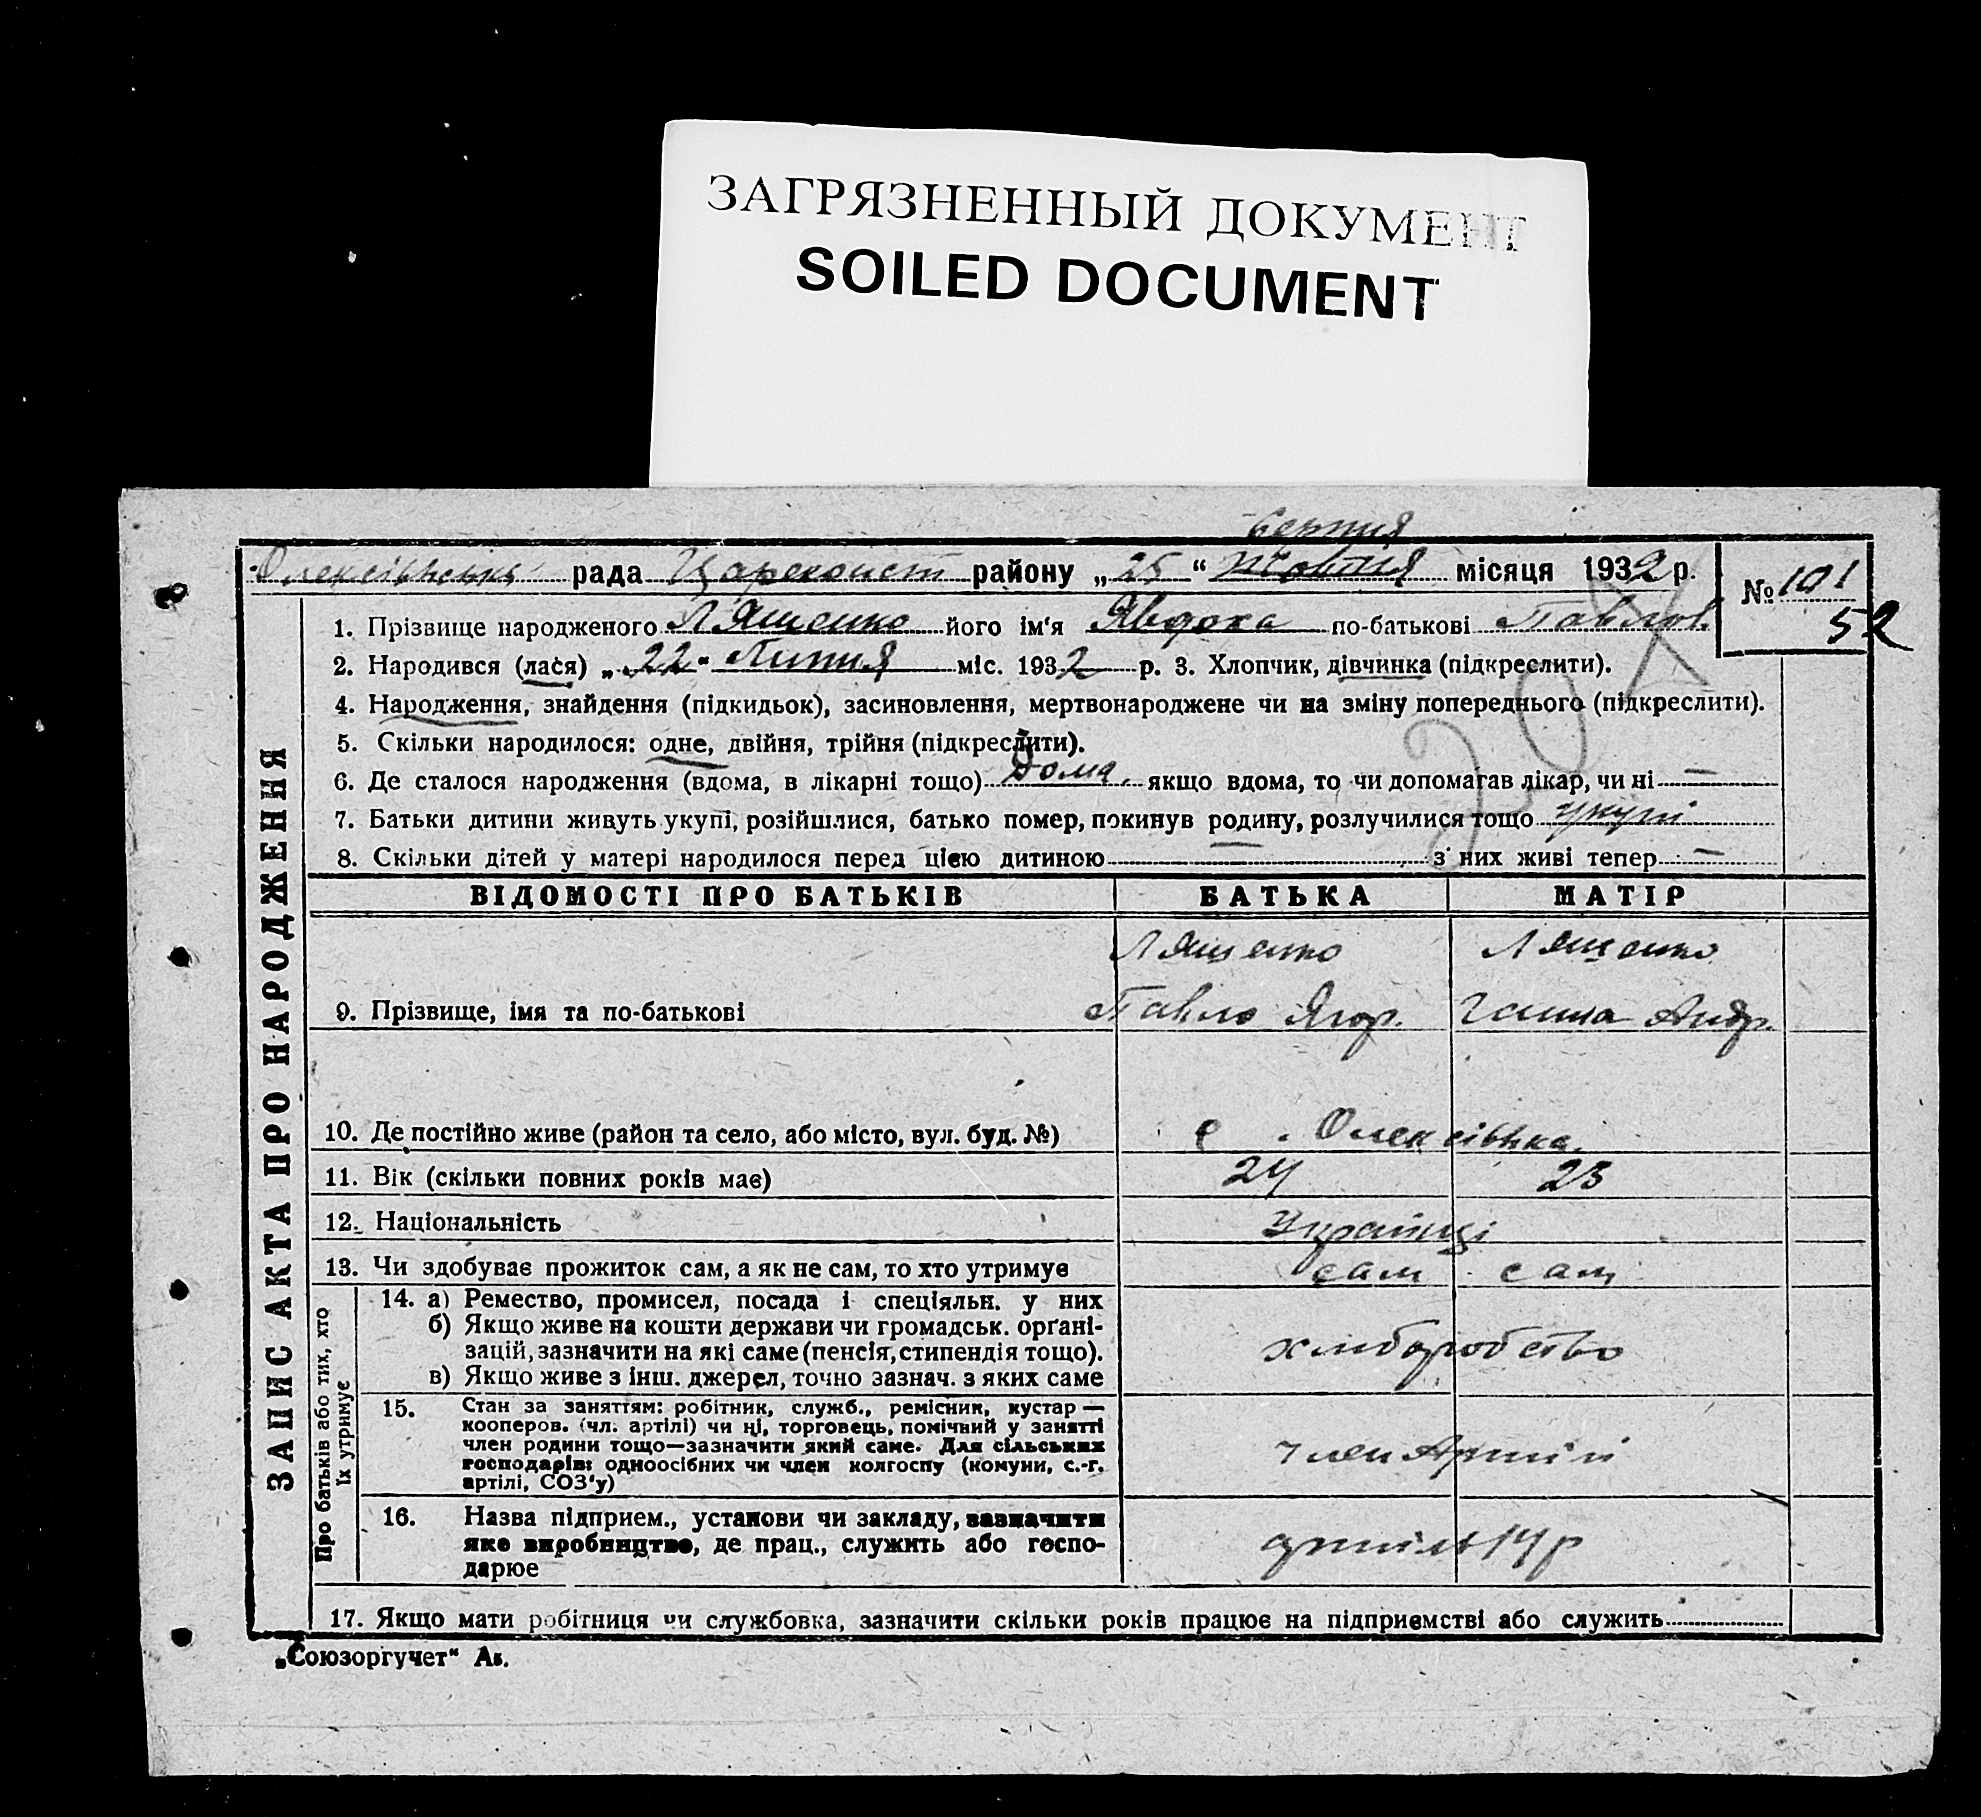 ЗАГРЯЗНЕННЫЙ ДОКУМЕНТ
SOILED DOCUMENT
серпня
Олексіївська рада район у „25“ Жовтня місяця 1932 р.
№ 101
52
1. Прізвище народженого Ляшенко його ім'я Явдоха по-батькові Павлов.
2. Народився (лася) „22“ Липня міс. 1932 р. 3. Хлопчик, дівчинка (підкреслити).
4. Народження, знайдення (підкидьок), засиновлення, мертвонароджене чи на зміну попереднього (підкреслити).
5. Скільки народилося: одне, двійня, трійня (підкреслити).
6. Де сталося народження (вдома, в лікарні тощо) Дома. якщо вдома, то чи допомагав лікар, чи ні —
7. Батьки дитини живуть укупі, розійшлися, батько помер, покинув родину, розлучилися тощо укупі
8. Скільки дітей у матері народилося перед цією дитиною — з них живі тепер —
ЗАПИС АКТА ПРО НАРОДЖЕННЯ
ВІДОМОСТІ ПРО БАТЬКІВ БАТЬКА МАТІР
Ляшенко Ляшенко
9. Прізвище, імя та по-батькові Павло Ягор. Ганна Андр.
10. Де постійно живе (район та село, або місто, вул. буд. №) с. Олексіївка.
11. Вік (скільки повних років має) 24 23
12. Національність Українці
13. Чи здобуває прожиток сам, а як не сам, то хто утримує сам сам
Про батьків або тих, хто
їх утримує
14. а) Ремество, промисел, посада і спеціяльн. у них
б) Якщо живе на кошти держави чи громадськ. орґані-
зацій, зазначити на які саме (пенсія, стипендія тощо).
в) Якщо живе з інш. джерел, точно зазнач. з яких саме
хліборобство
15. Стан за заняттям: робітник, служб., ремісник, кустар —
кооперов. (чл. артілі) чи ні, торговець, помічний у занятті
член родини тощо—зазначити який саме. Для сільських
господарів: одноосібних чи член колгоспу (комуни, с.-г.
артілі, СОЗ'у)
член Артілі
16. Назва підприєм., установи чи закладу, зазначити
яке виробництво, де прац., служить або госпо-
дарюе
артіль
17. Якщо мати робітниця чи службовка, зазначити скільки років працює на підприємстві або служить
„Союзоргучет“ Ак.